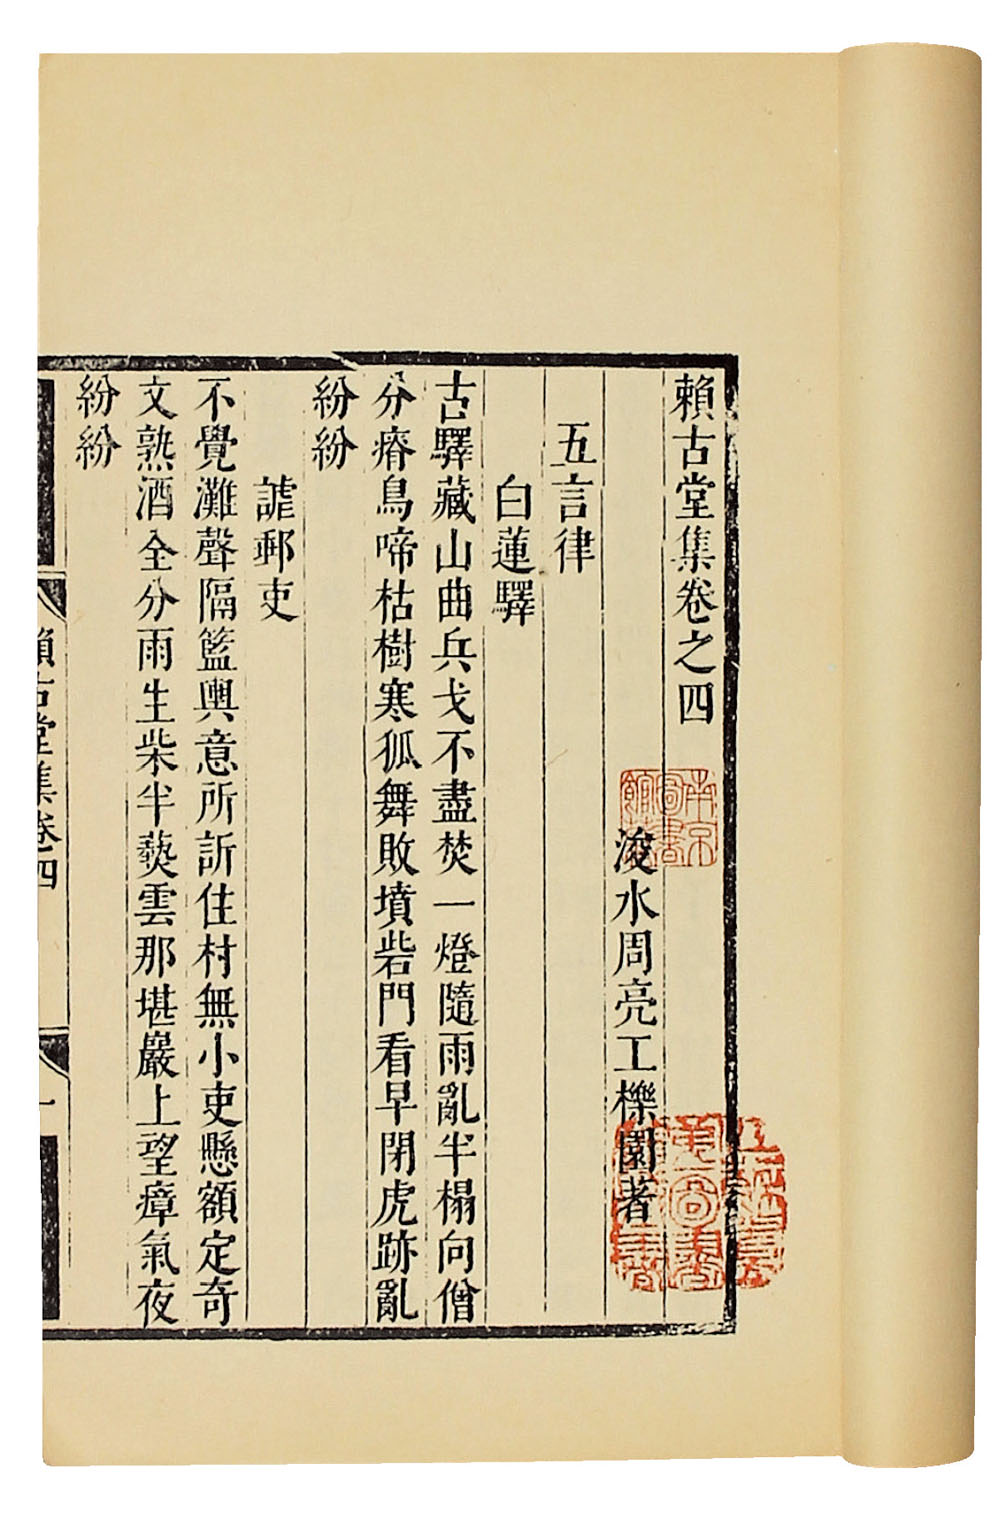 賴古堂集卷之四
浚水周亮工櫟園著
五言律
白蓮驛
古驛藏山曲兵戈不盡焚一燈隨雨亂半榻向僧
分瘠鳥啼枯樹寒狐舞敗墳砦門看早閉虎跡亂
紛紛
謔郵吏
不覺灘聲隔籃輿意所訢住村無小吏懸額定奇
文熟酒全分雨生柴半爇雲那堪巖上望瘴氣夜
紛紛
賴古堂集卷四
一
南京圖書館藏